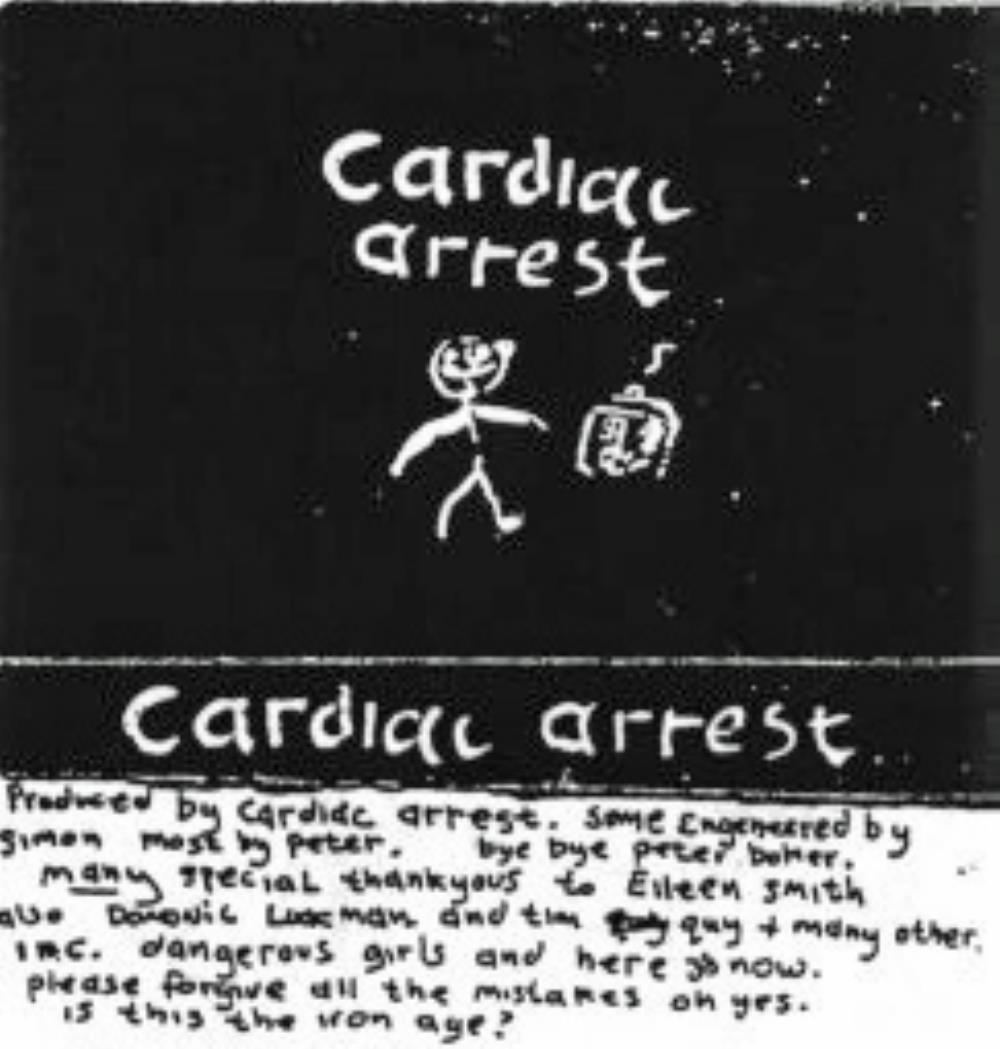 Cardiac
arrest
Cardiac arrest.
Produced by Cardiac arrest. Some Engeneered by
simon most by peter. bye bye peter boker.
many special thankyous to Eileen smith
also Domonic Luckman and tim quy + many other.
inc. dangerous girls and here & now.
please forgive all the mistakes oh yes.
is this the iron age?